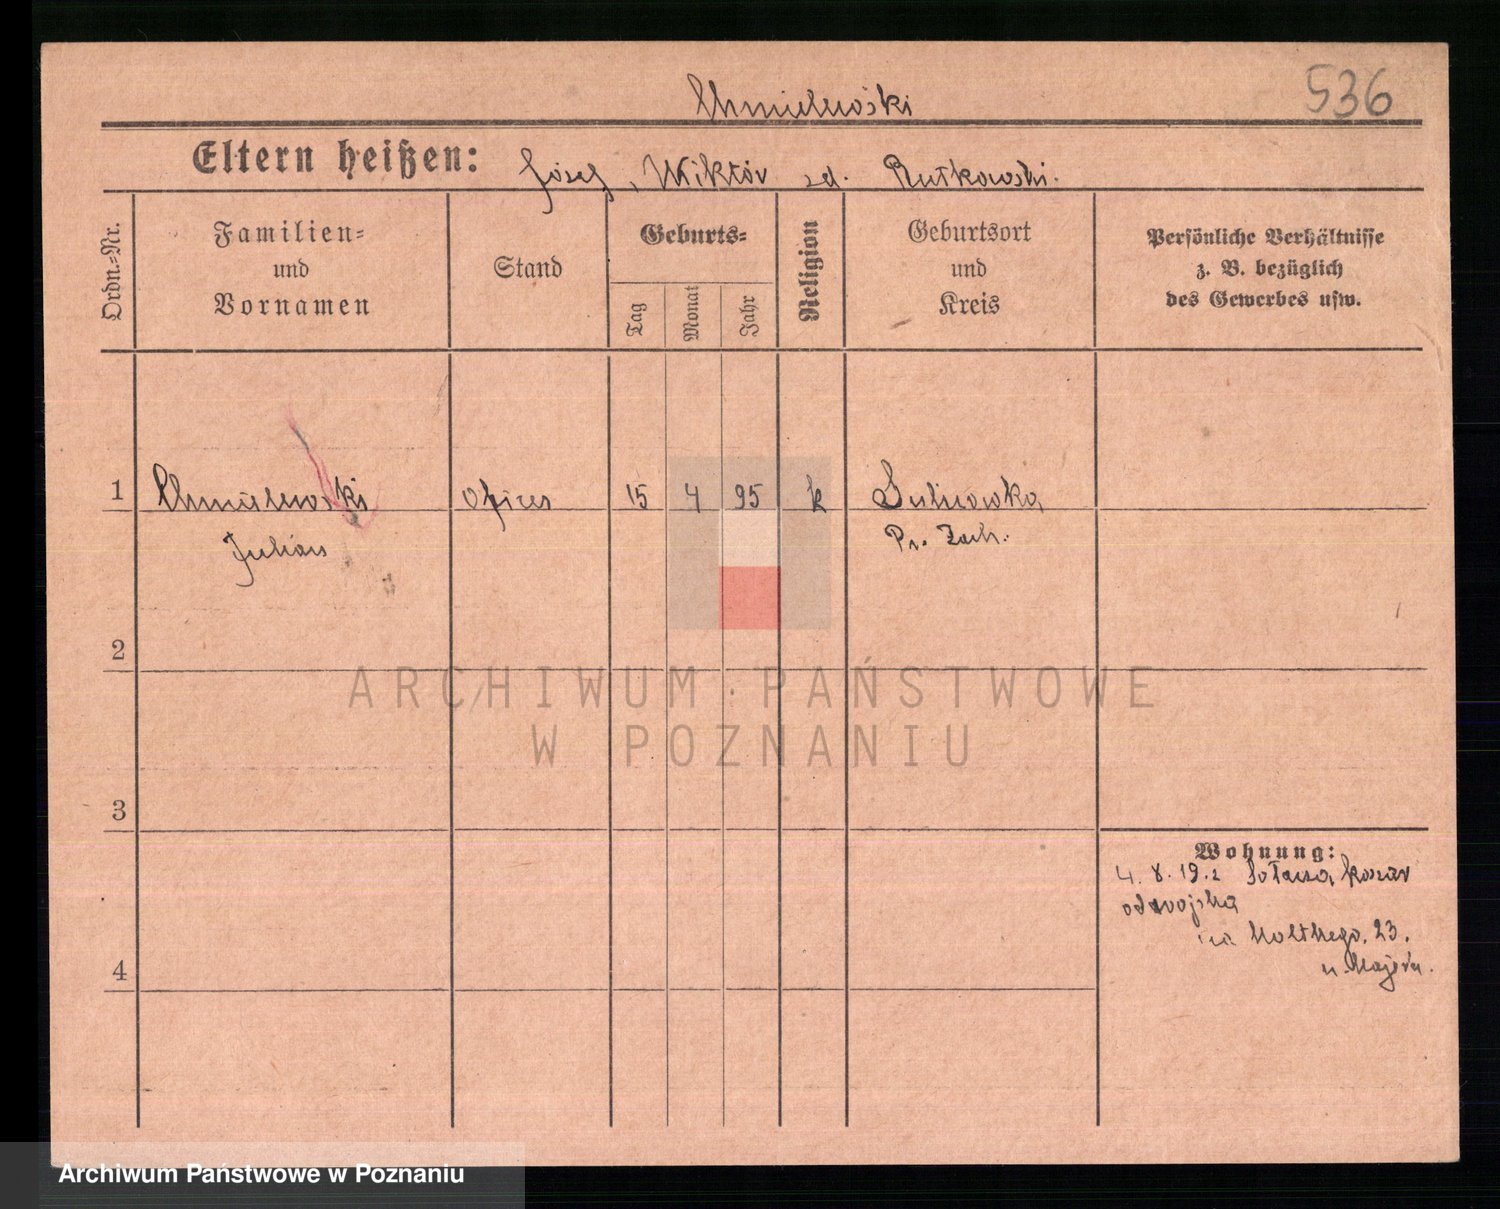 Chmielewski
536
Eltern heißen: Józef, Wiktór zd. Rutkowski.
Ordn.-Nr.
Familien- und Vornamen
Stand
Geburts-
Tag
Monat
Jahr
Religion
Geburtsort und Kreis
Persönliche Verhältnisse z. B. bezüglich des Gewerbes usw.
1 Chmielewski oficer 15 4 95 k Sulinowka
Julian Pr. Zach.
2
ARCHIWUM PAŃSTWOWE
W POZNANIU
3
Wohnung:
4. 8. 19.2 Sołacza, koszar
od wojska
na Moltkego. 23.
4
u Majera.
Archiwum Państwowe w Poznaniu